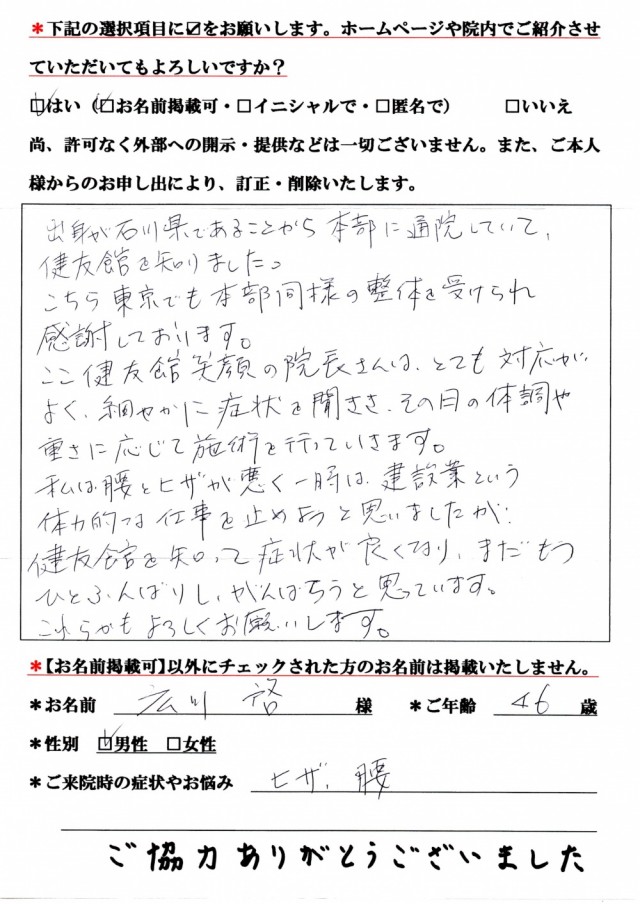 *下記の選択項目に☑をお願いします。ホームページや院内でご紹介させ
ていただいてもよろしいですか？
☑はい（☑お名前掲載可・□イニシャルで・□匿名で）　□いいえ
尚、許可なく外部への開示・提供などは一切ございません。また、ご本人
様からのお申し出により、訂正・削除いたします。
出身が石川県であることから本部に通院していて、
健友館を知りました。
こちら東京でも本部同様の整体を受けられ
感謝しております。
ここ健友館笑顔の院長さんは、とても対応が
よく、細やかに症状を聞きき、その日の体調や
重さに応じて施術を行っていきます。
私は腰とヒザが悪く一時は、建設業という
体力的な仕事を止めようと思いましたが、
健友館を知って症状が良くなり、まだもう
ひとふんばりし、がんばろうと思っています。
これからもよろしくお願いします。
*【お名前掲載可】以外にチェックされた方のお名前は掲載いたしません。
*お名前　広川 啓　様　*ご年齢　46　歳
*性別　☑男性　□女性
*ご来院時の症状やお悩み　ヒザ、腰
ご協力ありがとうございました